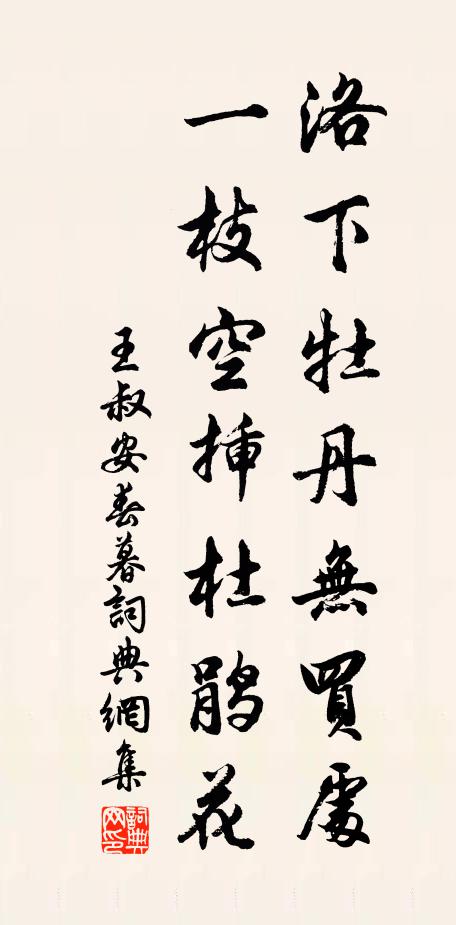 洛下牡丹無買處
一枝空揷杜鵑花
王叔安春暮詞典網集
詞典网印